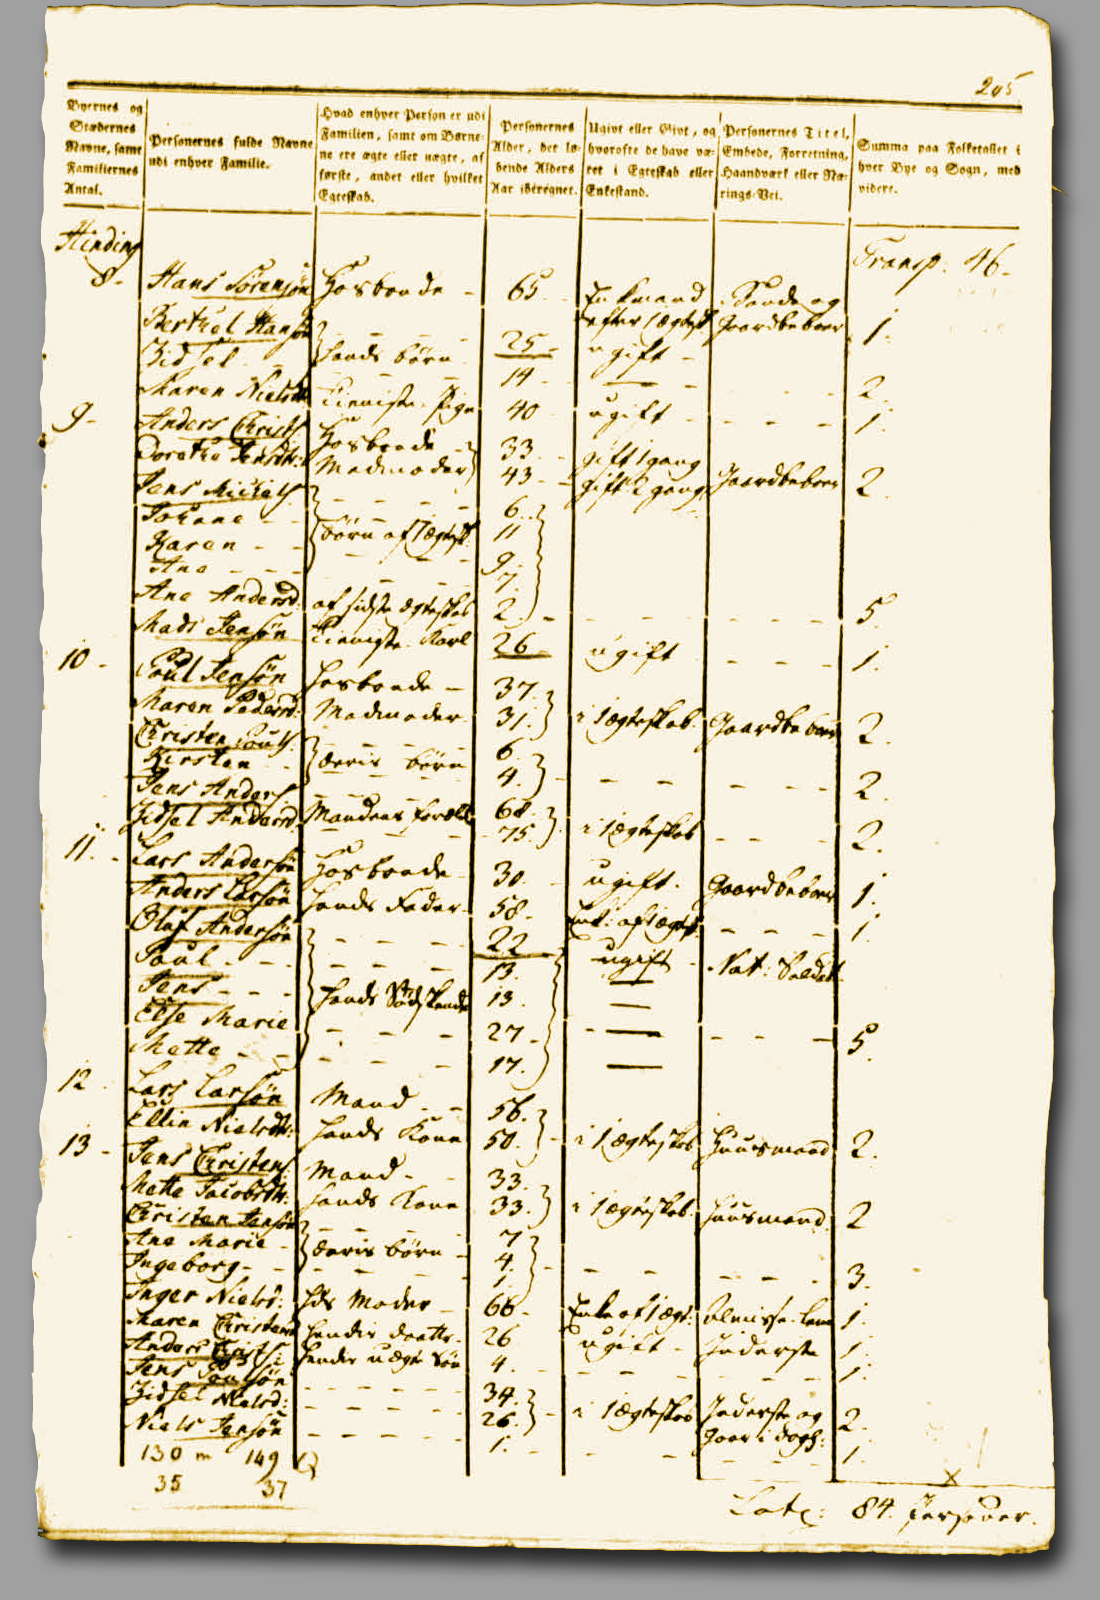 205
Byernes og Stædernes Navne, samt Familiernes Antal.
Personernes fulde Navne udi enhver Familie.
Hvad enhver Person er udi Familien, samt om Børnene ere ægte eller uægte, af første, andet eller hvilket Egteskab.
Personernes Alder, det løbende Alders Aar iberegnet.
Ugivt eller Givt, og hvorofte de have været i Egteskab eller Enkestand.
Personernes Titel, Embede, Forretning, Haandværk eller Nærings-Vei.
Summa paa Folketallet i hver Bye og Sogn, med videre.
Hinding Transp: 46
8 - Hans Sørensøn Hosbonde - 65 - Enkemand Bonde og
efter 1 ægtesk. Gaardbeboer 1.
Berthel Hansøn 25 - ugift -
Zidsel hands børn 14 - 2.
Maren Nielsdtr Tieniste Pige 40 ugift - 1.
9 - Anders Christs Hosbonde 33 gift 1 gang
Dorothe Jensdtr: Madmoder 43 gift 2 gang Gaardbeboer 2
Jens Michels 6.
Johane 11
Karen børn af 1 ægtesk. 9.
Ane 7.
Ane Andersd. af sidste ægteskab 2. 5.
Mads Jensøn Tieniste Karl 26 ugift 1.
10 - Poul Jensøn Hosbonde - 37.
Maren Pedersd: Madmoder 31. i 1 ægteskab. Gaardbeboer 2.
Christen Pouls. 6.
Kirsten deris børn 4. 2.
Jens Anders. 68.
Zidsel Andersd. Mandens forældre 75. i 1 ægteskab 2.
11. - Lars Andersøn Hosbonde 30. ugift. Gaardbeboer 1.
Anders Larsøn hands Fader 58. Enk: af 1 ægtesk. 1.
Oluf Andersøn 22 ugift Nat: Soldat
Poul 13.
Jens hands Sødskende 13.
Else Marie 27 - 5.
Mette 17.
12 Lars Larsøn Mand 56.
Ellin Nielsdtr: hands Kone 50. i 1 ægteskab Huusmand 2.
13 - Jens Christens Mand 33.
Mette Jacobsdtr: hands Kone 33. i 1 ægteskab. Huusmand. 2
Christen Jensøn 7
Ane Marie - deris børn 4.
Ingeborg - 1. 3.
Inger Nielsd: hds Moder 66 - Enke af 1 ægt: Almisse-lem 1.
Maren Christensd hendes daatter 26 ugift - Inderste 1.
Anders Christs: hendes uægte Søn 4. 1.
Jens Poulsøn 34.
Zidsel Nielsd: 26. i 1 ægteskab Inderste og 2.
Niels Jensøn 1. 1.
130 m 149 Q
35 37
Lat: 84. Personer.